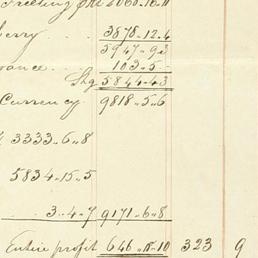 3878..12..4
5947..9.2
103..5
Stg 5844..4.3
Currency 9818..5..6
3333..6..8
5834..15..5
3..4..7 9171..6..8
Entire profit 646..18..10 323 9